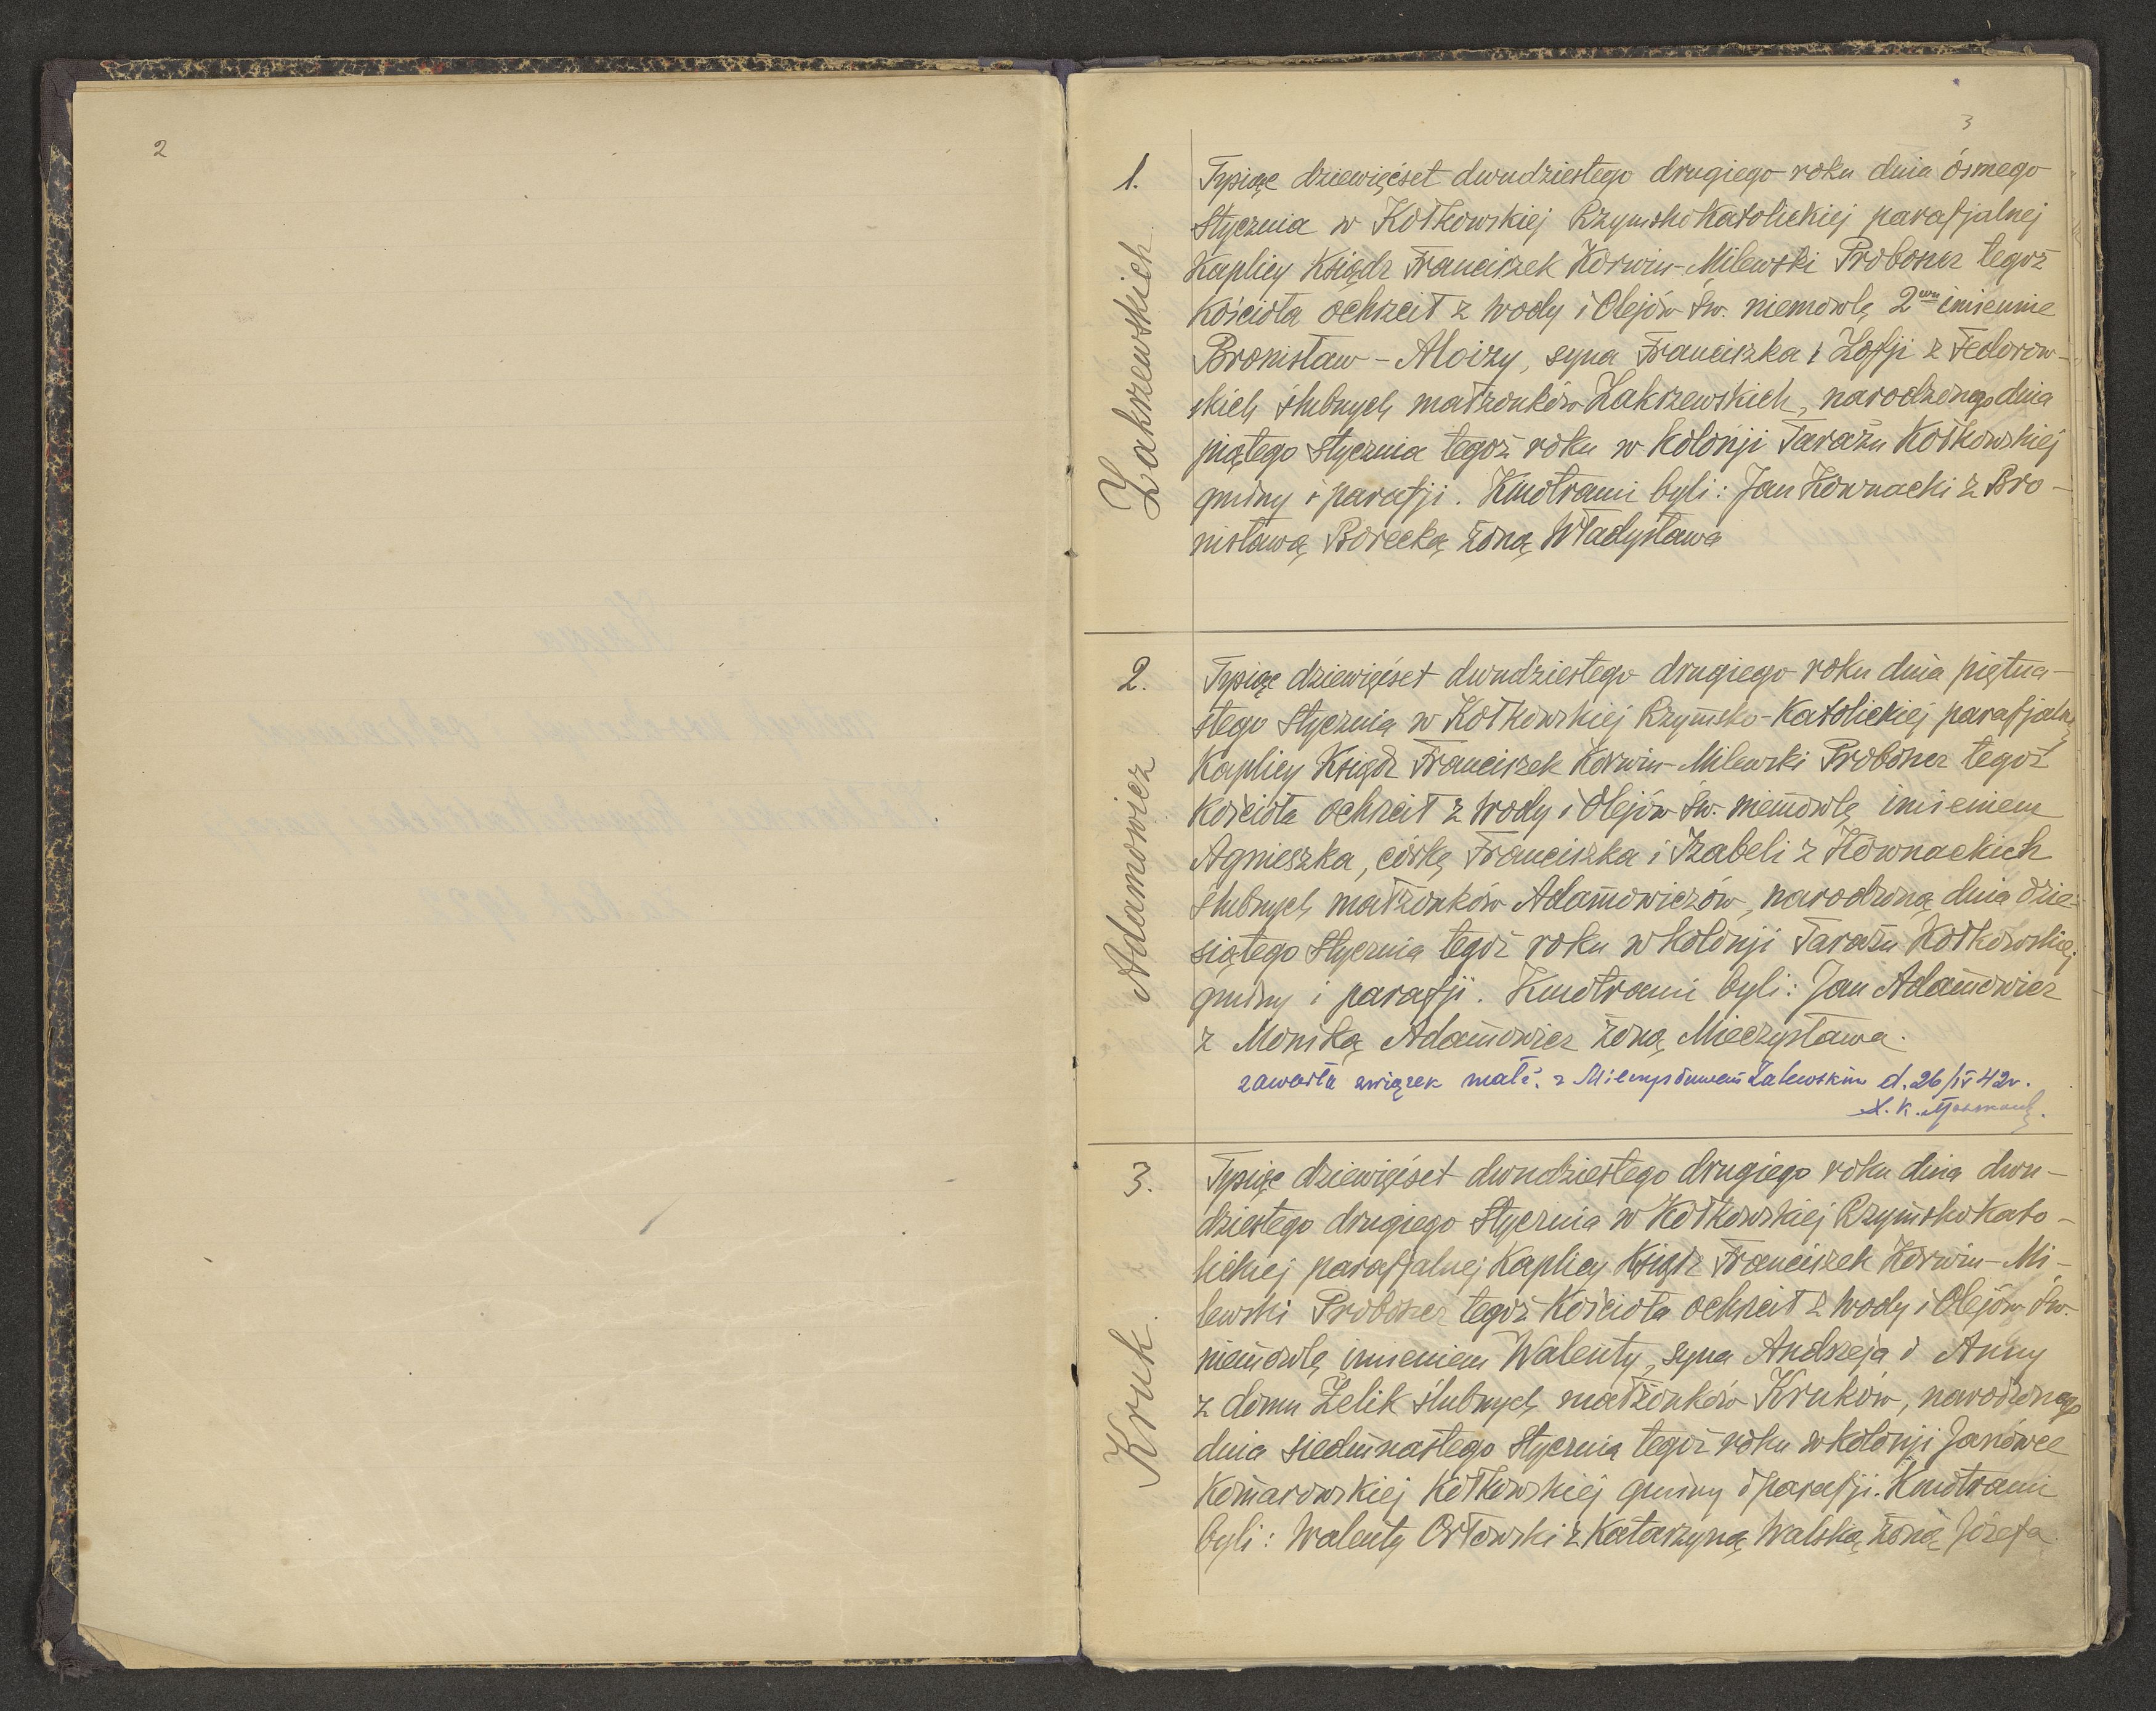 2
3
1.
Zakrzewskich
Tysiąc dziewięćset dwudziestego drugiego roku dnia ósmego
Stycznia w Kołkowskiej Rzymsko Katolickiej parafjalnej
Kaplicy Ksiądz Franciszek Korwin-Milewski Proboszcz tegoż
Kościoła ochrzcił z wody i Olejów Św. niemowlę 2wu imienne
Bronisław-Aloizy, syna Franciszka i Zofji z Fedorow-
skich ślubnych małżonków Zakrzewskich, narodzonego dnia
piątego Stycznia tegoż roku w kolonji Taraźu Kołkowskiej
gminy i parafji. Kmotrami byli: Jan Kownacki z Bro-
nisławą Borecką żoną Władysława
2.
Adamowicz
Tysiąc dziewięćset dwudziestego drugiego roku dnia piętna-
stego Stycznia w Kołkowskiej Rzymsko-Katolickiej parafjalnej
Kaplicy Ksiądz Franciszek Korwin-Milewski Proboszcz tegoż
Kościoła ochrzcił z wody i Olejów Św. niemowlę imieniem
Agnieszka, córkę Franciszka i Izabeli z Kownackich
ślubnych małżonków Adamowiczów, narodzoną dnia dzie-
siątego Stycznia tegoż roku w kolonji Taraźu Kołkowskiej
gminy i parafji. Kmotrami byli: Jan Adamowicz
z Moniką Adamowicz żoną Mieczysława.
zawarła związek małż. z Mieczysławem Zalewskim d. 26/IV 42r.
X. K.
3.
Kruk.
Tysiąc dziewięćset dwudziestego drugiego roku dnia dwu-
dziestego drugiego Stycznia w Kołkowskiej Rzymsko Kato-
lickiej parafjalnej Kaplicy Ksiądz Franciszek Korwin-Mi-
lewski Proboszcz tegoż Kościoła ochrzcił z wody i Olejów Św.
niemowlę imieniem Walenty, syna Andrzeja i Anny
z domu Zelik ślubnych małżonków Kruków, narodzonego
dnia siedmnastego Stycznia tegoż roku w kolonji Janówce
Komarowskiej Kołkowskiej gminy i parafji. Kmotrami
byli: Walenty Orłowski z Katarzyną Walską żoną Józefa.